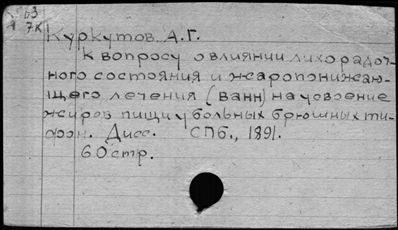 63
7К
Куркутов. А.Г.
К вопросу о влиянии лихорадоч-
ного состояния и жаропонижаю-
щего лечения (ванн) на усвоение
жиров пищи у больных брюшных ти-
фом. Дисс. СПб., 1891.
60 стр.